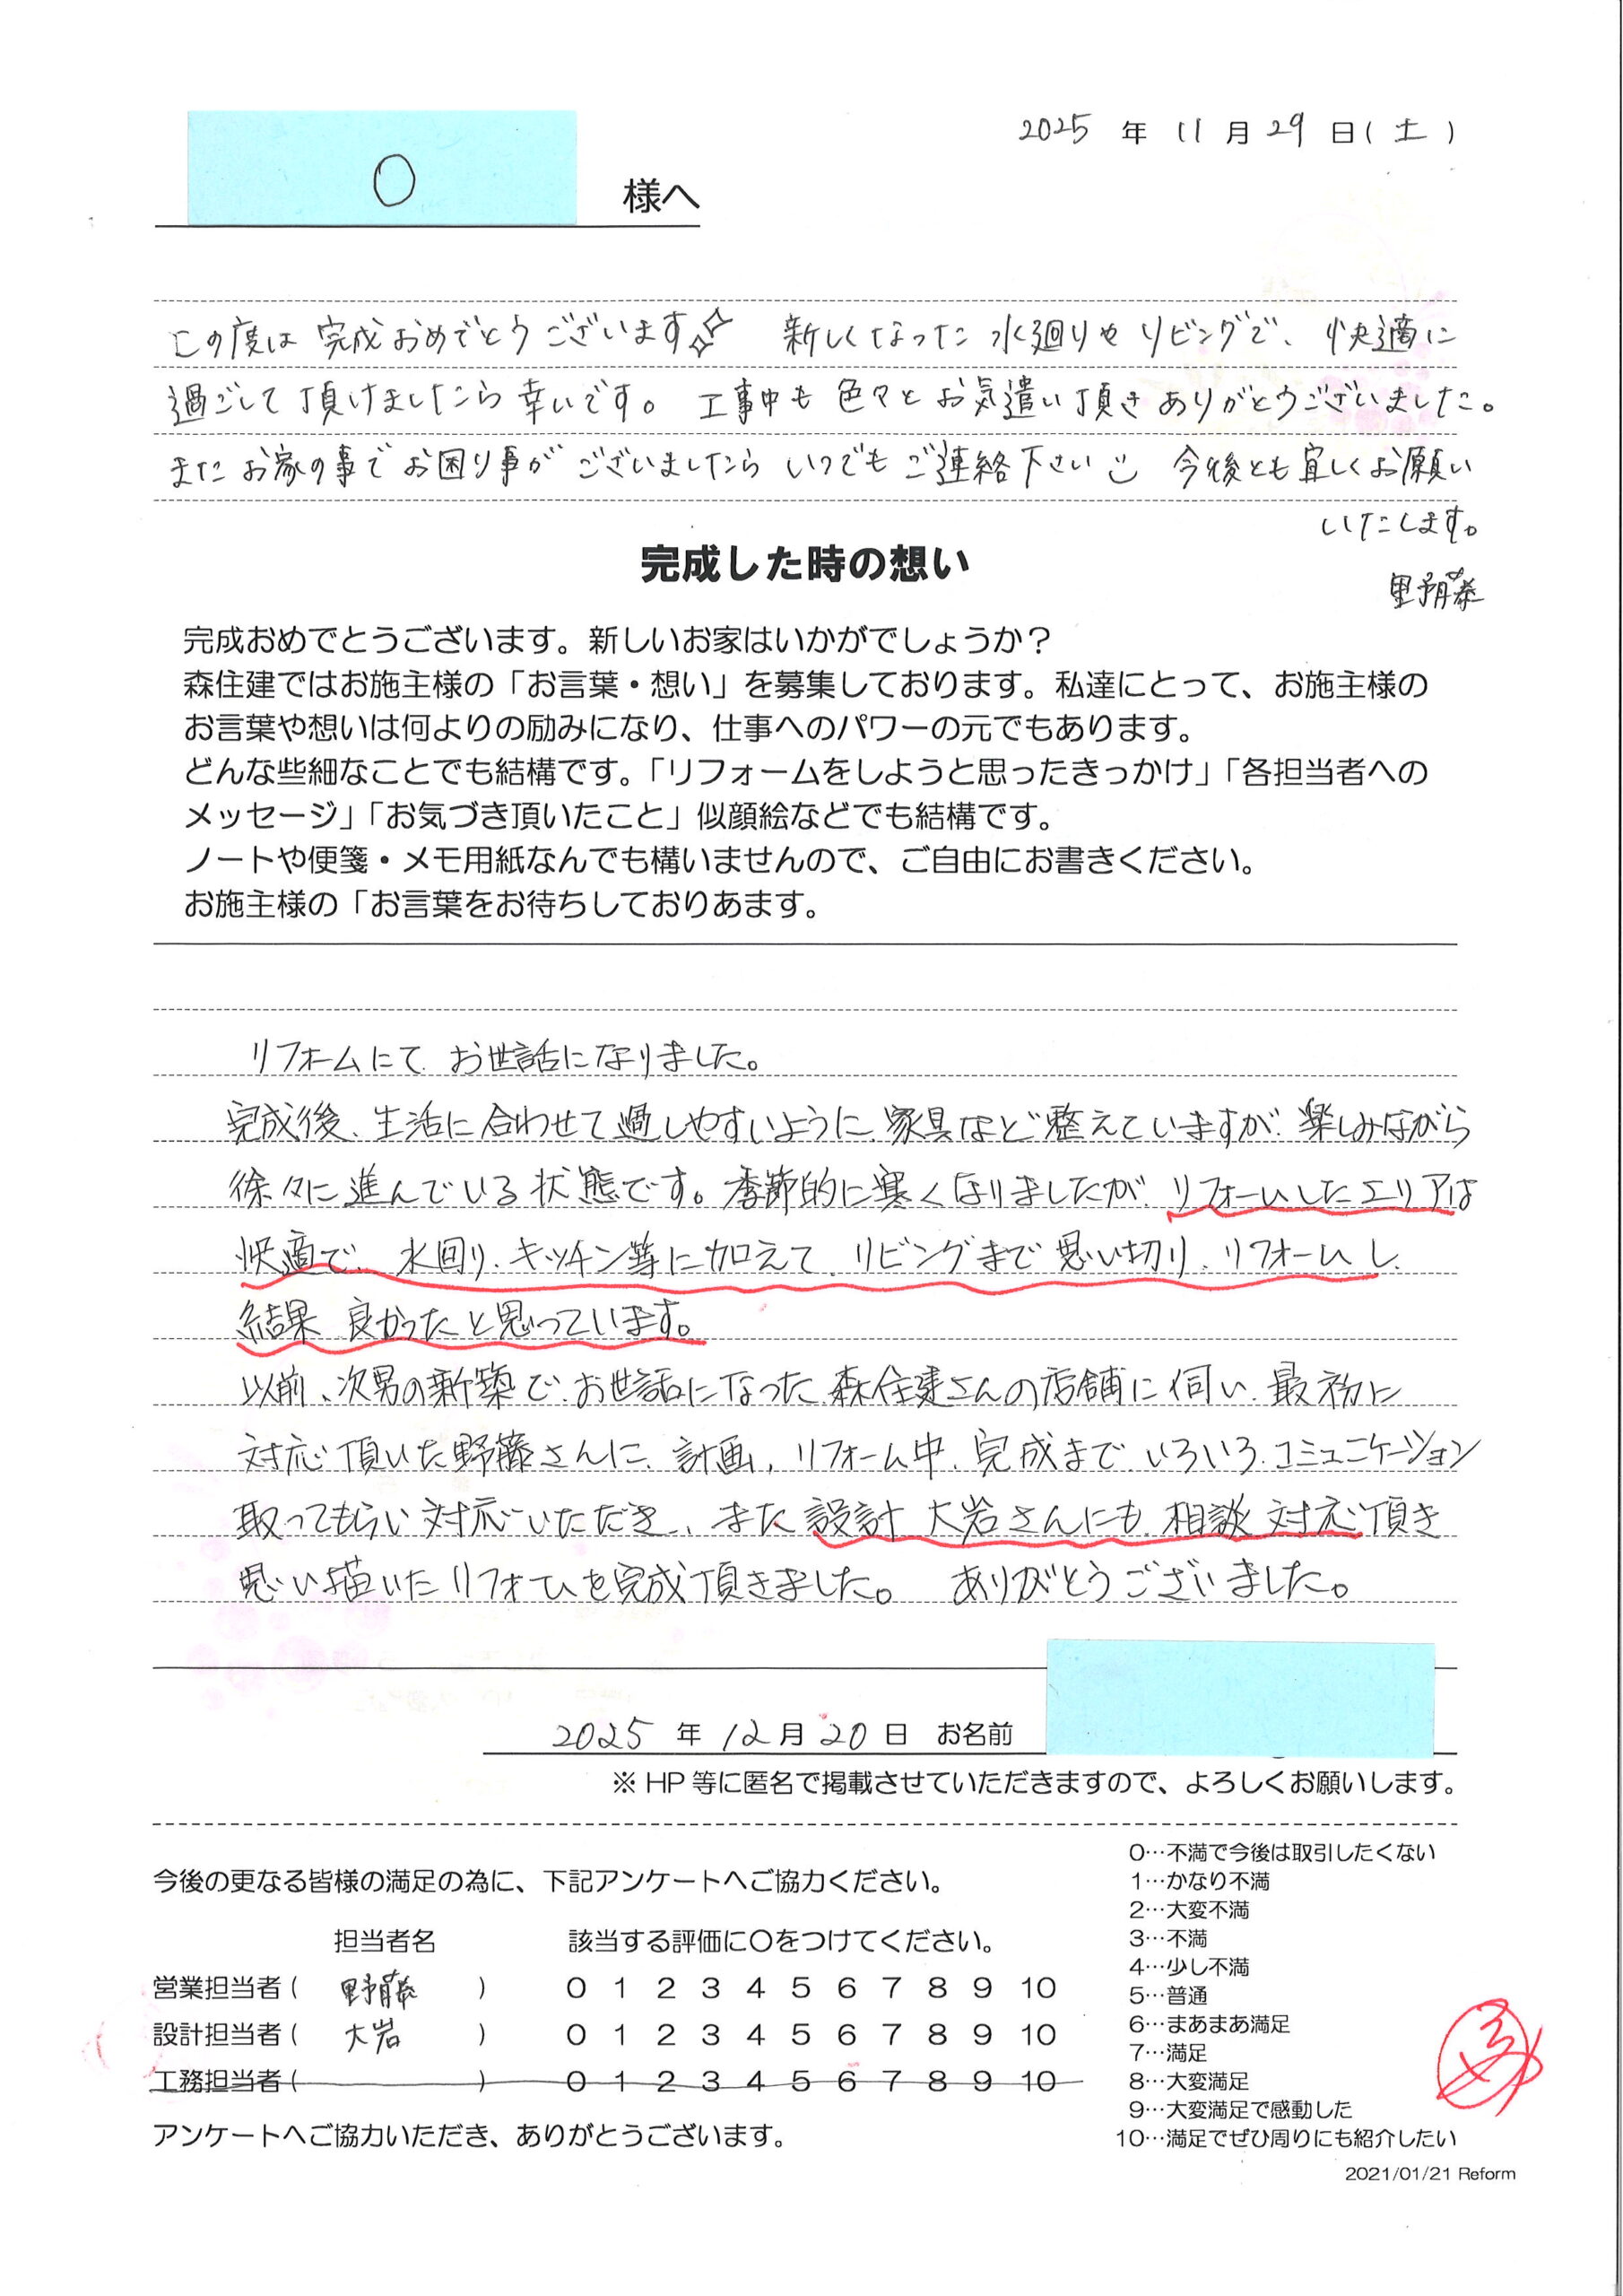 2025 年 11 月 29 日(土)
O 様へ
この度は 完成おめでとうございます 新しくなった 水廻りや リビングで、快適に
過ごして頂けましたら幸いです。 工事中も 色々と お気遣い頂き ありがとうございました。
また お家の事で お困り事が ございましたら いつでも ご連絡下さい 今後とも宜しくお願い
いたします。
野藤
完成した時の想い
完成おめでとうございます。新しいお家はいかがでしょうか？
森住建ではお施主様の「お言葉・想い」を募集しております。私達にとって、お施主様の
お言葉や想いは何よりの励みになり、仕事へのパワーの元でもあります。
どんな些細なことでも結構です。「リフォームをしようと思ったきっかけ」「各担当者への
メッセージ」「お気づき頂いたこと」似顔絵などでも結構です。
ノートや便箋・メモ用紙なんでも構いませんので、ご自由にお書きください。
お施主様の「お言葉をお待ちしておりあます。
リフォームにて、お世話になりました。
完成後、生活に合わせて過しやすいように、家具など整えていますが、楽しみながら
徐々に進んでいる状態です。季節的に寒くなりましたが、リフォームしたエリアは
快適で、水回り、キッチン等に加えて、リビングまで思い切り、リフォームし、
結果 良かったと思っています。
以前、次男の新築で、お世話になった、森住建さんの店舗に伺い、最初に
対応頂いた野藤さんに、計画、リフォーム中、完成まで、いろいろ、コミュニケーション
取ってもらい対応いただき、、また、設計 大岩さんにも、相談 対応頂き
思い描いたリフォームを完成頂きました。 ありがとうございました。
2025 年 12月 20 日 お名前
※ HP 等に匿名で掲載させていただきますので、よろしくお願いします。
今後の更なる皆様の満足の為に、下記アンケートへご協力ください。
担当者名 該当する評価に〇をつけてください。
営業担当者( 野藤 ) 0 1 2 3 4 5 6 7 8 9 10
設計担当者( 大岩 ) 0 1 2 3 4 5 6 7 8 9 10
工務担当者( ) 0 1 2 3 4 5 6 7 8 9 10
アンケートへご協力いただき、ありがとうございます。
0…不満で今後は取引したくない
1…かなり不満
2…大変不満
3…不満
4…少し不満
5…普通
6…まあまあ満足
7…満足
8…大変満足
9…大変満足で感動した
10…満足でぜひ周りにも紹介したい
2021/01/21 Reform